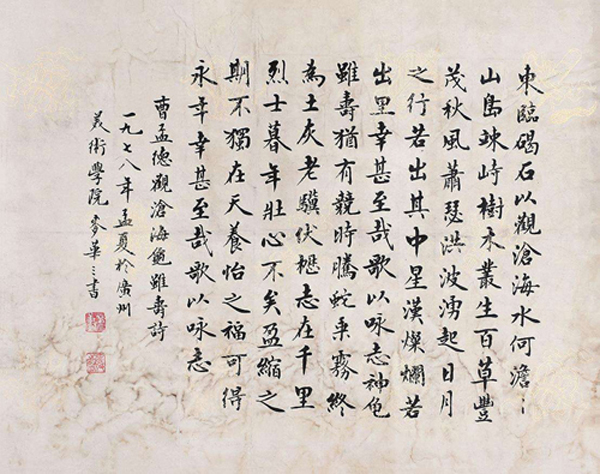 東臨碣石以觀滄海水何澹〻
山島竦峙樹木叢生百草豐
茂秋風蕭瑟洪波湧起日月
之行若出其中星漢燦爛若
出里幸甚至哉歌以咏志神龟
雖壽猶有競時騰蛇乘霧終
為土灰老驥伏櫪志在千里
烈士暮年壯心不矣盈縮之
期不獨在天養怡之福可得
永年幸甚至哉歌以咏志
曹孟德觀滄海龜雖壽詩
一九七八年孟夏於廣州
美術學院麥華三書